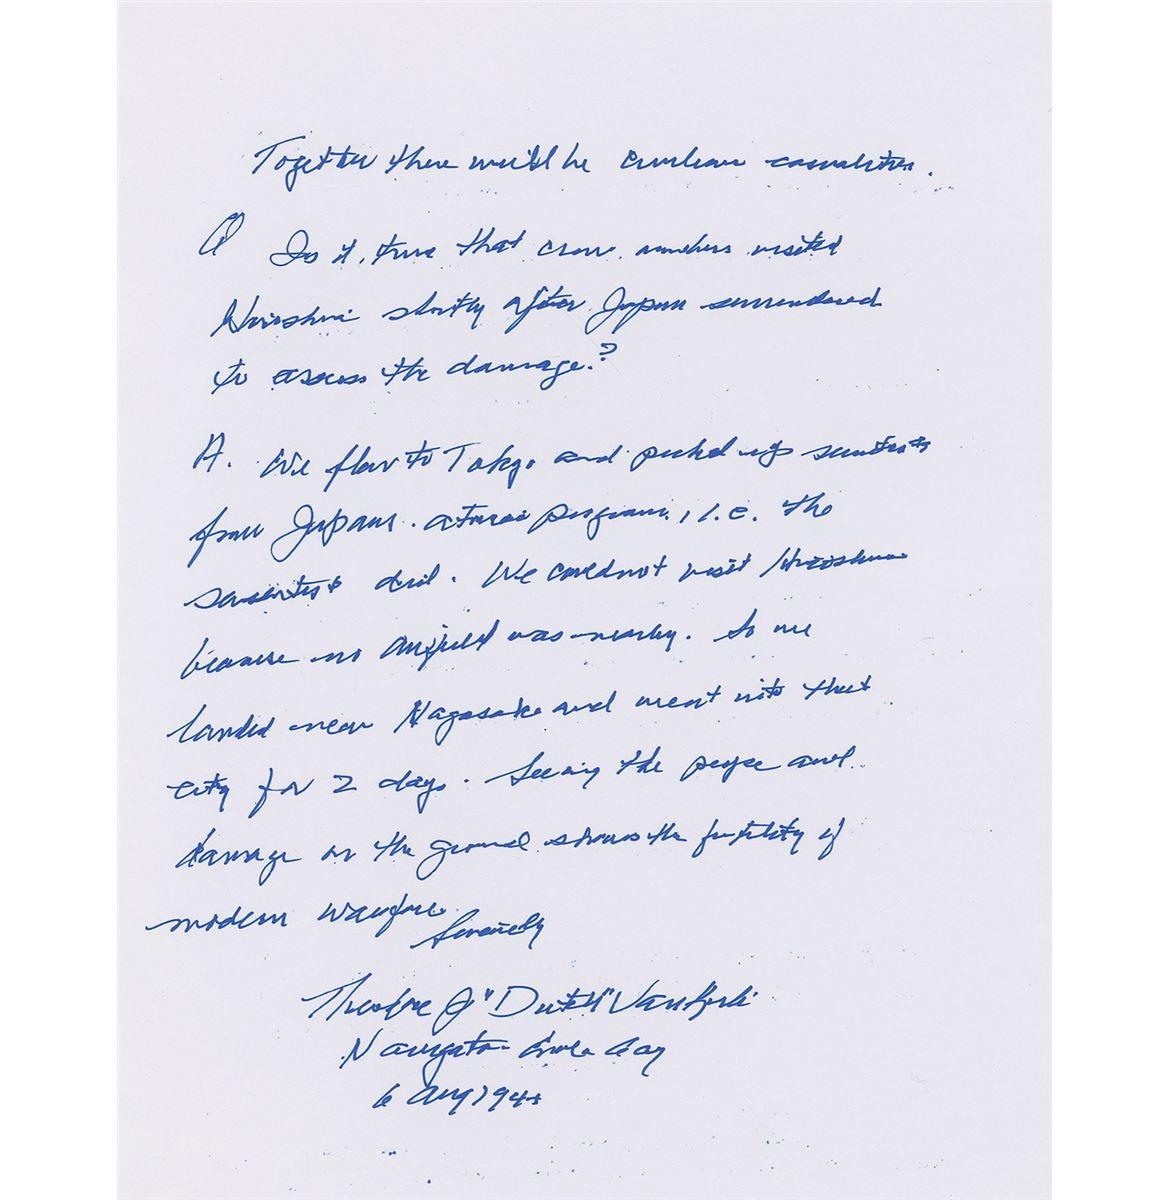 Together there would be civilian casualities.
Q Is it true that crew members visited
Hiroshima shortly after Japan surrendered
to assess the damage?
A. We flew to Tokyo and picked up scientists
from Japans atomic program, i.e. the
scientists did. We could not visit Hiroshima
because no airfield was nearby. So we
landed near Nagasaki and went into that
city for 2 days. Seeing the people and
damage on the ground shows the futility of
modern warfare.
Sincerely
Theodore J "Dutch" VanKirk
Navigator Enola Gay
6 Aug 1945